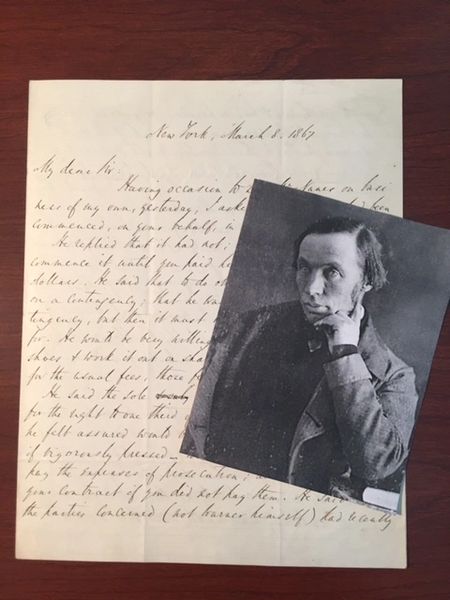 New York, March 8. 1867
My dear Sir:
Having occasion to on busi
ness of my own, yesterday, I aske had been
commenced, on your behalf, in
He replied that it had not;
commence it until you paid
dollars. He said that to do
on a contingency; that he
tingency, but then it must
for. He would be very willing
shoes & work it out on sha
for the usual fees, those
He said the sole
for the right to one third
he felt assured would
if vigorously pressed —
pay the expenses of prosecution;
your contract if you did not pay them. He sai
the parties concerned (not himself) had recently